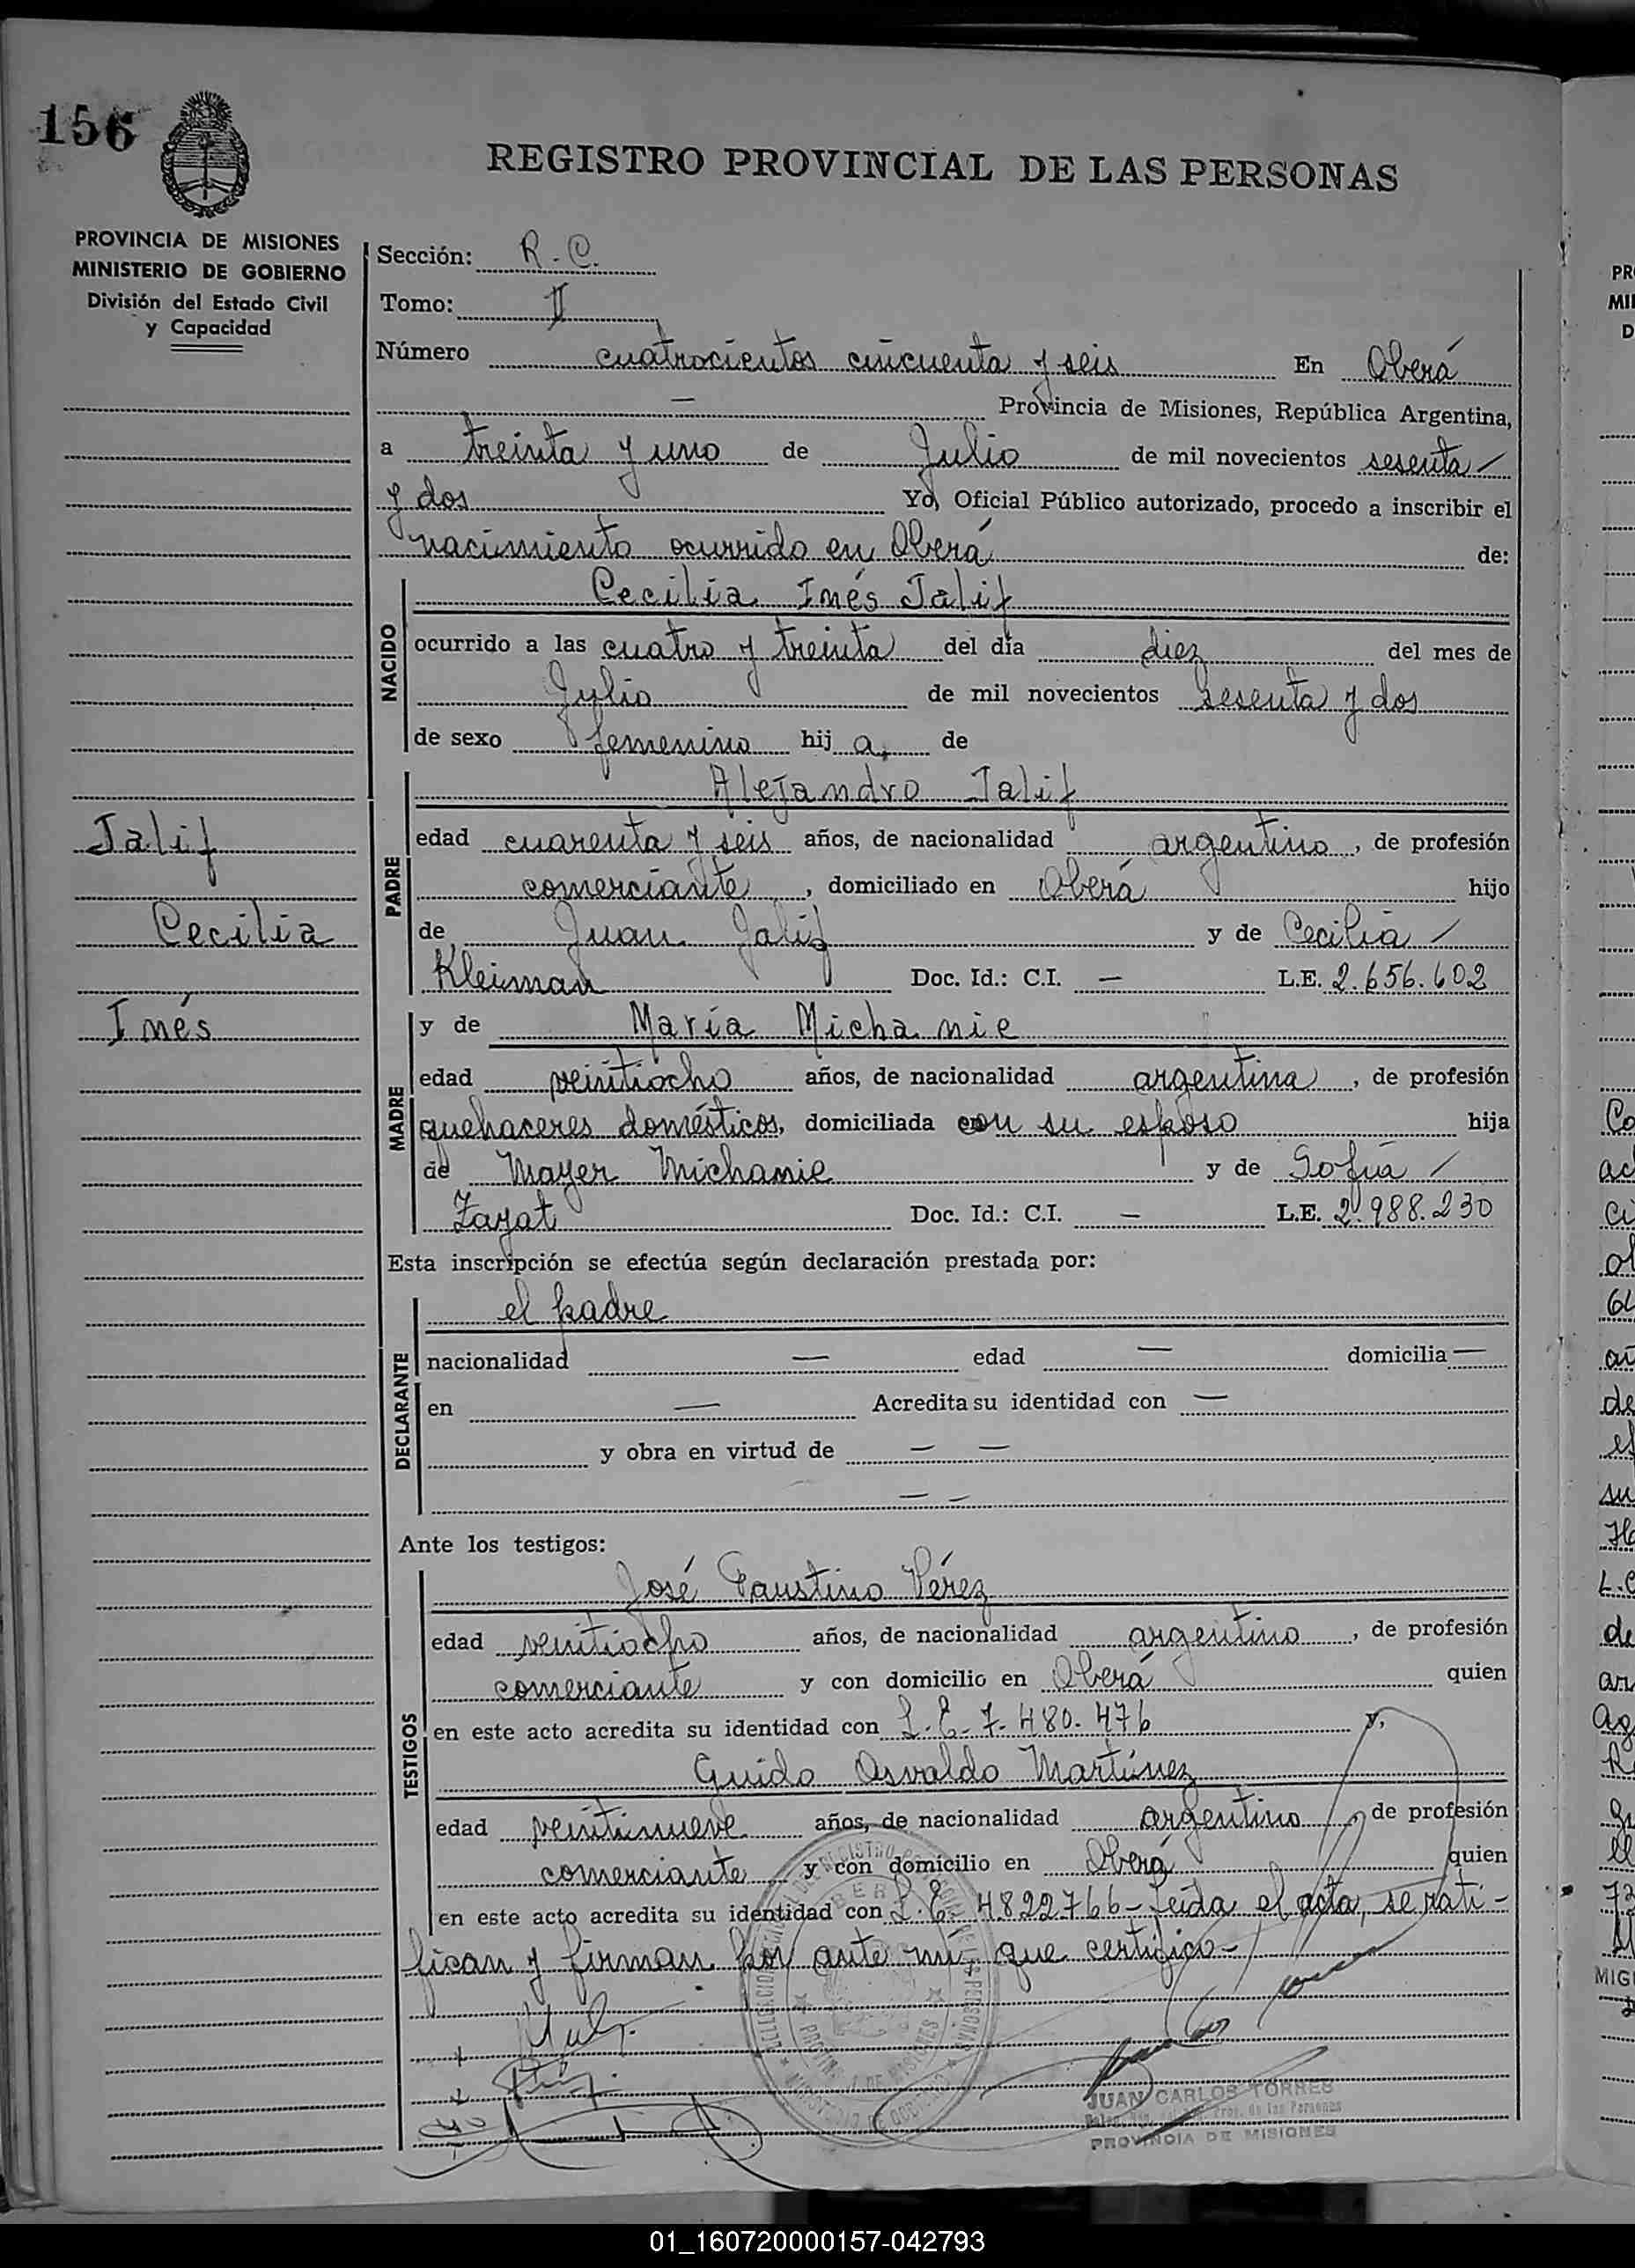 156
REGISTRO PROVINCIAL DE LAS PERSONAS
PROVINCIA DE MISIONES
MINISTERIO DE GOBIERNO
División del Estado Civil
y Capacidad
Sección: R. C.
Tomo: II
Número cuatrocientos cincuenta y seis En Oberá
— Provincia de Misiones, República Argentina,
a treinta y uno de Julio de mil novecientos sesenta
y dos Yo, Oficial Público autorizado, procedo a inscribir el
nacimiento ocurrido en Oberá de:
NACIDO
Cecilia Inés Jalif
ocurrido a las cuatro y treinta del día diez del mes de
Julio de mil novecientos sesenta y dos
de sexo femenino hij a, de
Jalif
Cecilia
Inés
PADRE
Alejandro Jalif
edad cuarenta y seis años, de nacionalidad argentino, de profesión
comerciante, domiciliado en Oberá hijo
de Juan Jalif y de Cecilia
Kleiman Doc. Id.: C.I. — L.E. 2.656.602
MADRE
y de María Michanie
edad veintiocho años, de nacionalidad argentina, de profesión
quehaceres domésticos, domiciliada con su esposo hija
de Mayer Michanie y de Sofía
Zayat Doc. Id.: C.I. — L.E. 2.988.230
Esta inscripción se efectúa según declaración prestada por:
DECLARANTE
el padre
nacionalidad — edad — domicilia —
en — Acredita su identidad con —
y obra en virtud de — —
— —
Ante los testigos:
TESTIGOS
José Faustino Pérez
edad veintiocho años, de nacionalidad argentino, de profesión
comerciante y con domicilio en Oberá quien
en este acto acredita su identidad con L. E. 7.480.476 y,
Guido Osvaldo Martínez
edad veintinueve años, de nacionalidad argentino, de profesión
comerciante y con domicilio en Oberá quien
en este acto acredita su identidad con L. E. 4822766 - Leida el acta, se rati-
fican y firman por ante mi que certifico -
JUAN CARLOS TORRES
Prov. de las Personas
PROVINCIA DE MISIONES
01_160720000157-042793